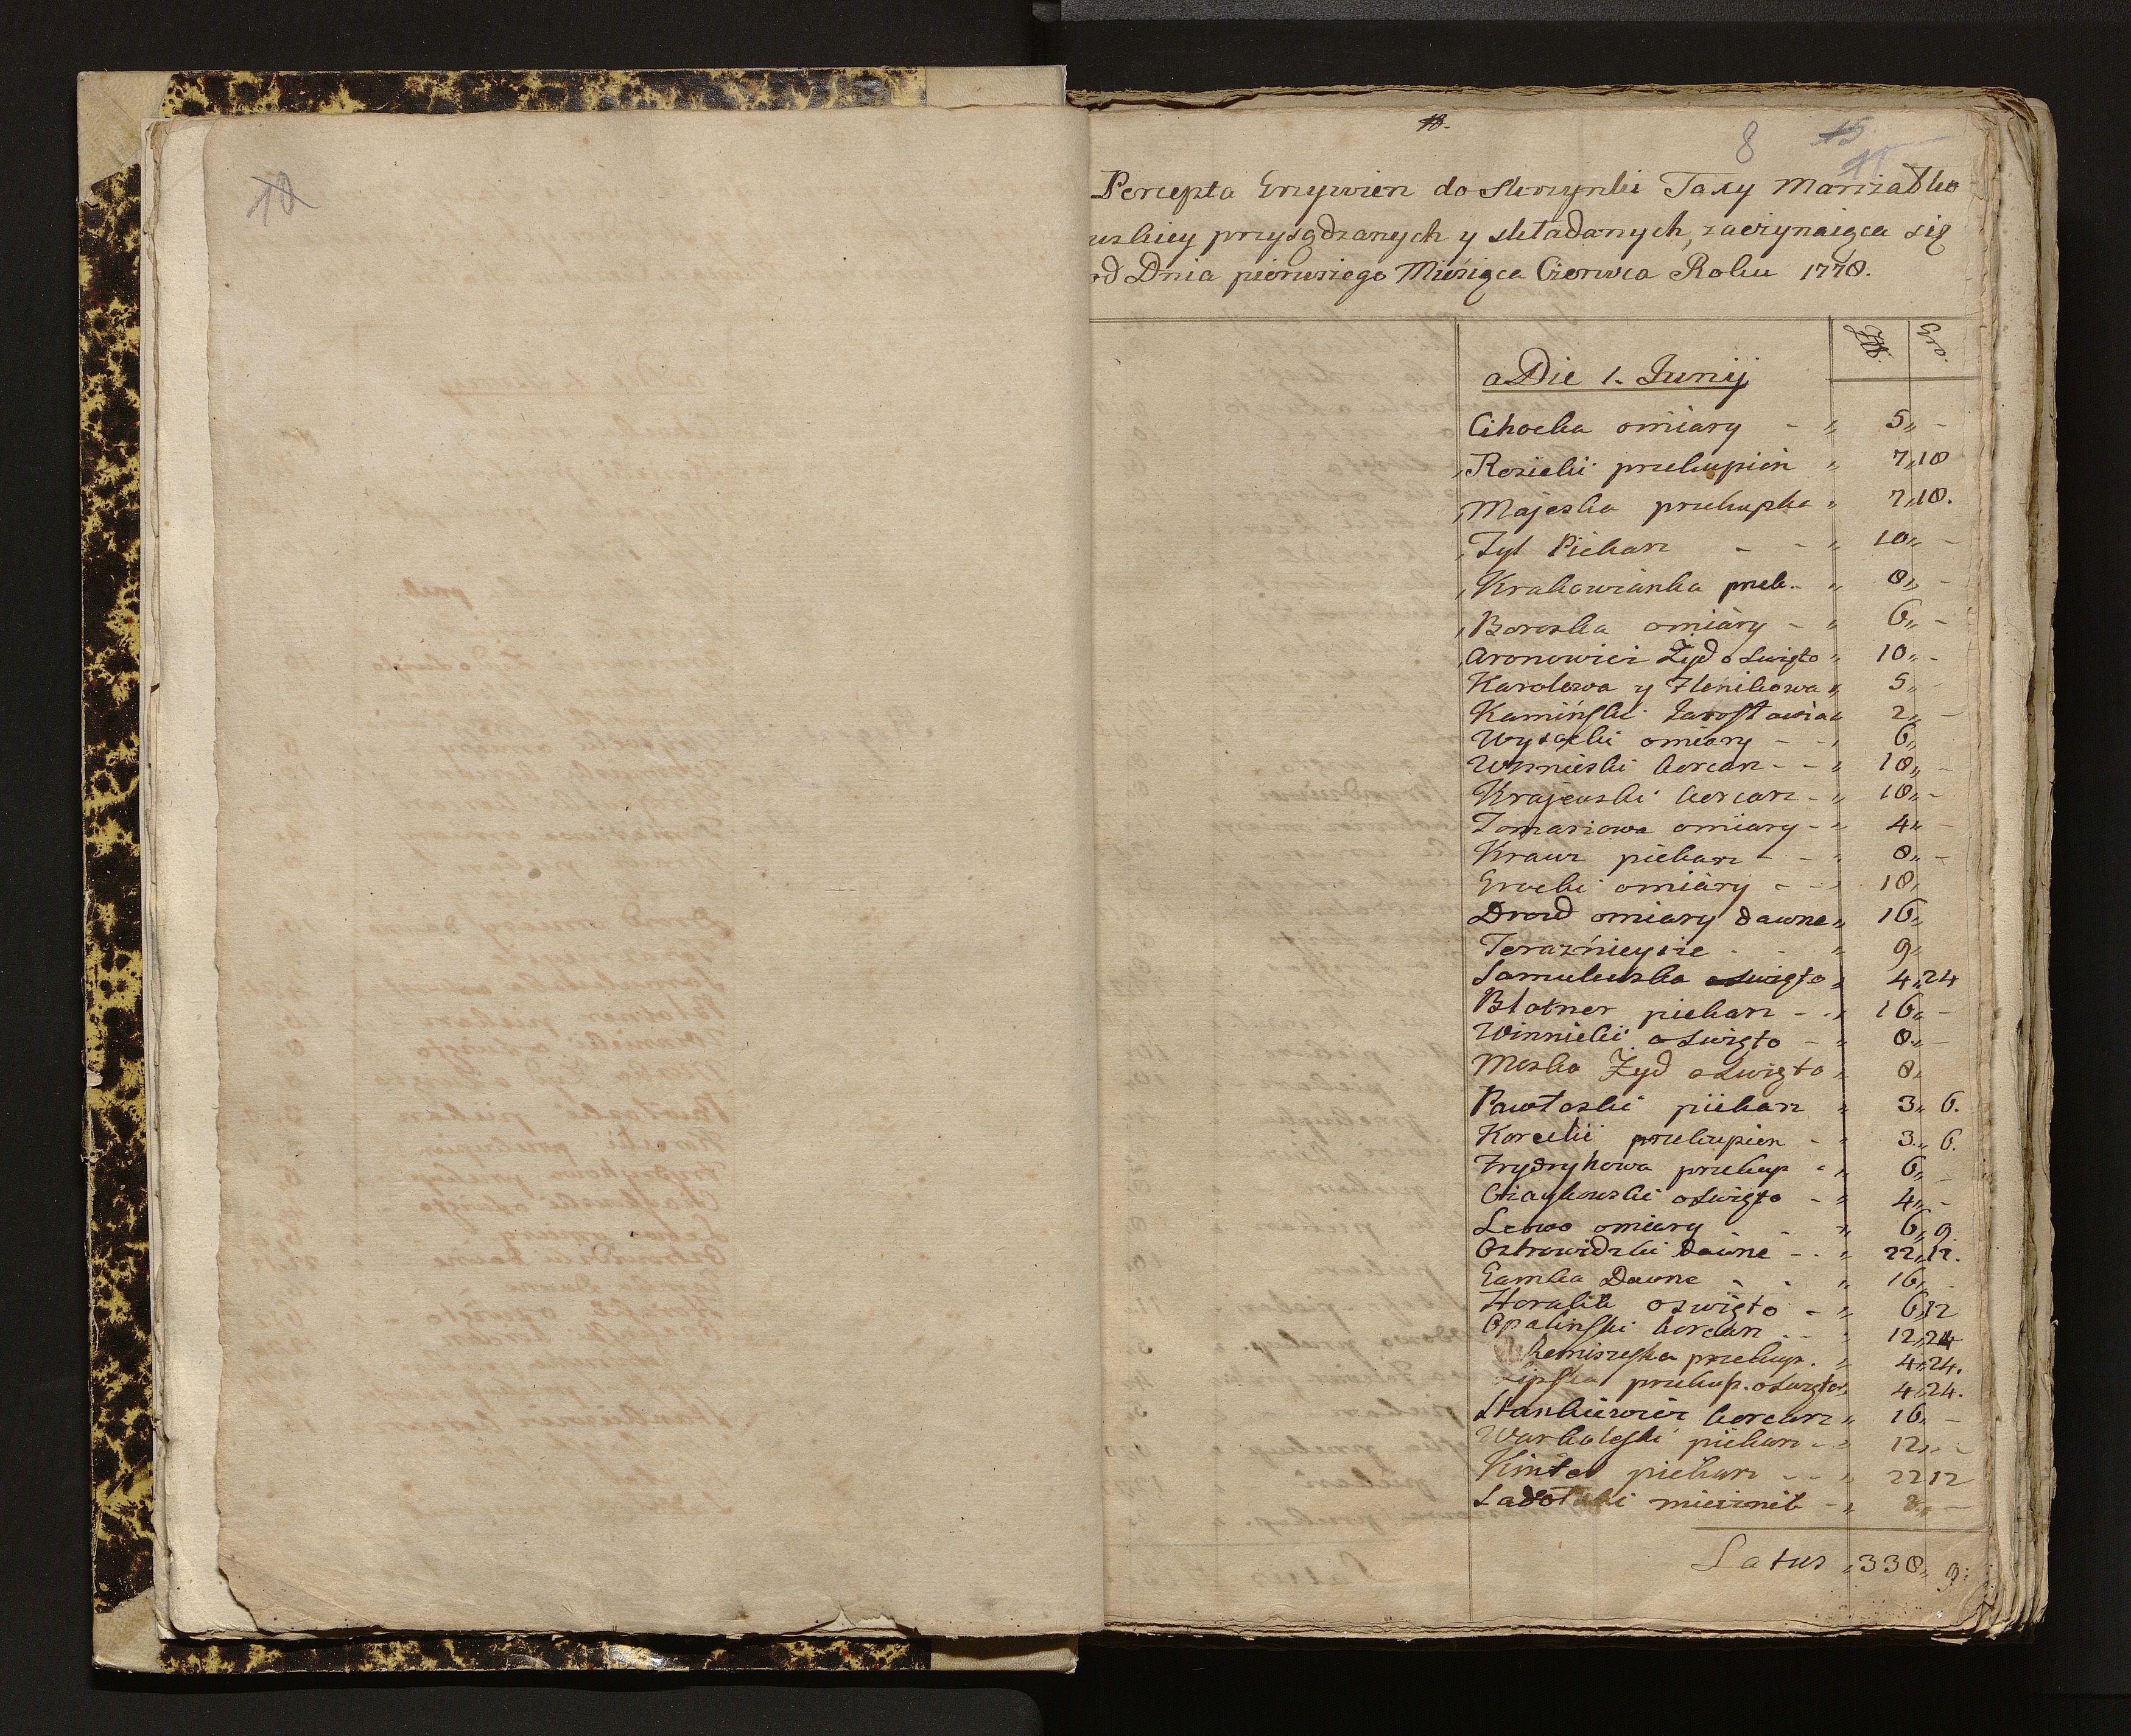 10
10.
8 15
11
Percepta Grzywien do Skrzynki Taxy Marszałko
wskiey przysądzanych y składanych, zaczynaiąca się
od Dnia pierwszego Miesiąca Czerwca Roku 1778.
Zł. Gro.
a Die 1. Junij
Cihocka omiary - „ 5„ -
Rozicki przekupień „ 7„18
Majeska przekupka „ 7„18.
Zyl Piekarz - - „ 10„ -
Krakowianka przek. - „ 8„ -
Boroska omiary - „ 6„ -
Aronowicz Żyd o swięto „ 10„ -
Karolowa y Zlenikowa „ 5„ -
Kamiński Jarosławia „ 2„ -
Wysocki omiary - - „ 6„
Wisnieski korcarz - - „ 18„ -
Krajewski korcarz - „ 18„ -
Tomasiowa omiary - „ 4„ -
Krauz piekarz - - „ 8„ -
Grocki omiary - - „ 18„
Drozd omiary dawne „ 16„
Teraźnieysze - - „ 9„
Samulewska o swięto „ 4„24
Blotner piekarz - „ 16„ -
Winnicki o swięto - „ 8„ -
Moska Żyd o swięto „ 8„
Pawłoski piekarz „ 3„ 6.
Korcelii przekupien - „ 3„ 6.
Frydrykowa przekup - „ 6„ -
Czaykowski o swięto - „ 4„ -
Lewo omiary - - „ 6„ 9
Ostrowidzki dawne - - „ 22„12.
Gamka Dawne - - „ 16„ -
Horalik o swięto - „ 6„12
Opalinski korcarz - - „ 12„24
Remiszeska przekup. „ 4„24.
Lipska przekup. o swięto „ 4„24.
Stankiewicz korcarz „ 16„ -
Warkaleski piekarz - „ 12„ -
Kinta piekarz - - „ 22„12
miecznik - „ 8„ -
Latus „338„ 9: